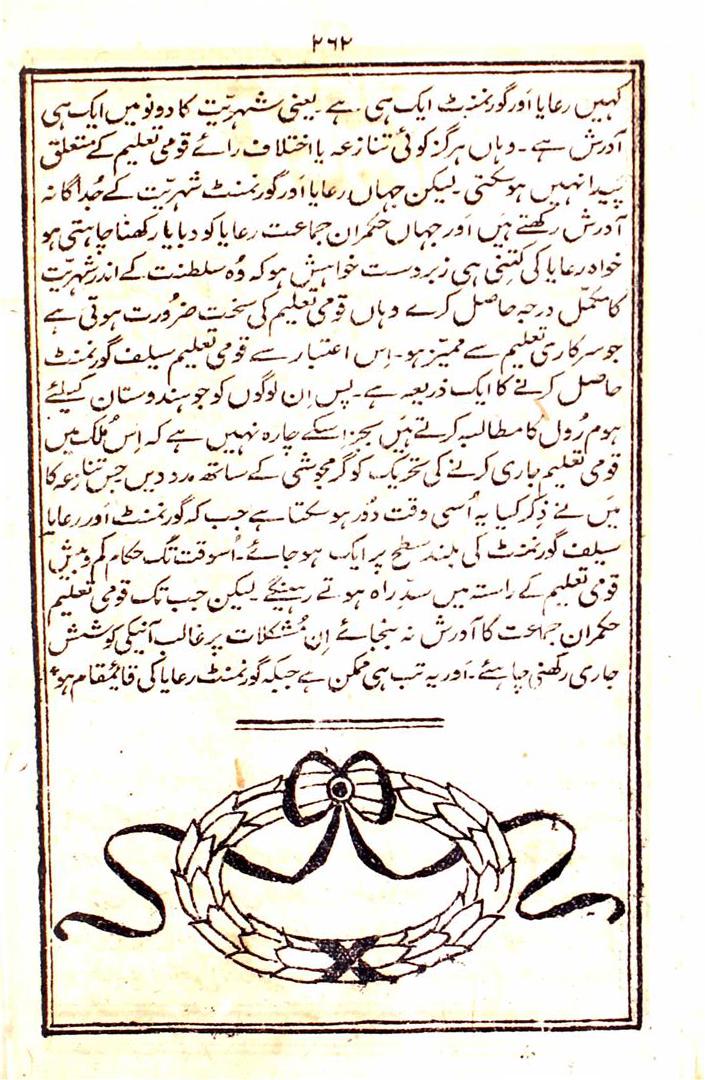 ۲۶۲
کہیں رعایا اَور گورنمنٹ ایک ہی ہے۔ یعنی شہریّت کا دونو میں ایک ہی
آدرش ہے۔ وہاں ہرگز کوئی تنازعہ یا اختلاف رائے قومی تعلیم کے متعلق
پَیدا نہیں ہو سکتی۔ لیکن جہاں رعایا اَور گورنمنٹ شہریّت کے جُداگانہ
آدرش رکھتے ہَیں اَور جہاں حکمران جماعت رعایا کو دبایا رکھنا چاہتی ہو
خواہ رعایا کی کتنِی ہی زبردست خواہش ہو کہ وُہ سلطنت کے اندر شہریّت
کا مکمّل درجہ حاصل کرے وہاں قومی تعلیم کی سخت ضرُورت ہوتی ہے
جو سرکاری تعلیم سے ممیّز ہو۔ اِس اعتبار سے قومی تعلیم سیلف گورنمنٹ
حاصل کرنے کا ایک ذریعہ ہے۔ پس اِن لوگوں کو جو ہندوستان کیلئے
ہوم رُول کا مطالبہ کرتے ہَیں بجز اِسکے چارہ نہیں ہے کہ اِس مُلک میں
قومی تعلیم جاری کرنے کی تحریک کو گرمجوشی کے ساتھ مدد دیں جس تنازعہ کا
مَیں نے ذِکر کیا یہ اُسی وقت دُور ہو سکتا ہے جب کہ گورنمنٹ اَور رعایا
سیلف گورنمنٹ کی بلند سطح پر ایک ہو جائے۔ اُسوقت تک حکام کم و بیش
قومی تعلیم کے راستہ میں سدِّ راہ ہوتے رہینگے۔ لیکن جب تک قومی تعلیم
حکمران جماعت کا آدرش نہ بنجائے اِن مُشکلات پر غالب آنیکی کوشش
جاری رکھنی چاہئے۔ اَور یہ تب ہی ممکن ہے جبکہ گورنمنٹ رعایا کی قائمقام ہو